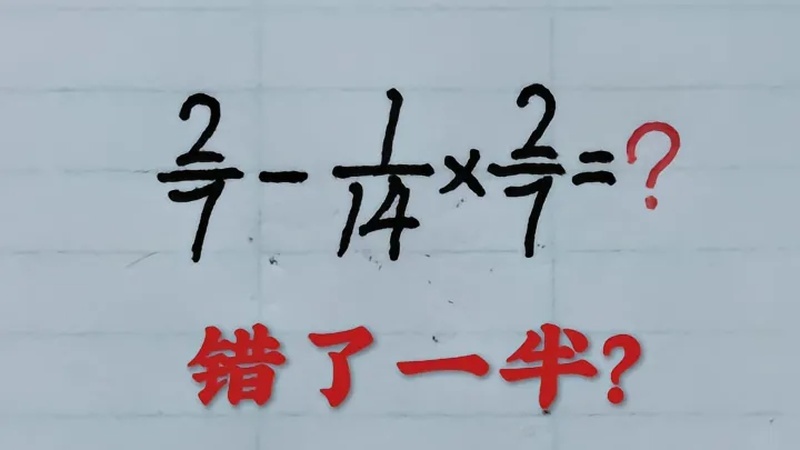 2/7 - 1/14 × 2/7 = ?
错了一半?